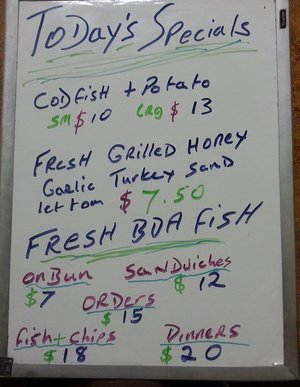 TODay's Specials
CODfish + Potato
SM $10 LRG $ 13
FRESH GRILLED HONEY
Gaelic Turkey Sand
let tom $ 7.50
FRESH BDA FISH
on Bun SANDwiches
$7 $ 12
ORDers
$ 15
fish + chips DINNERS
$ 18 $ 20